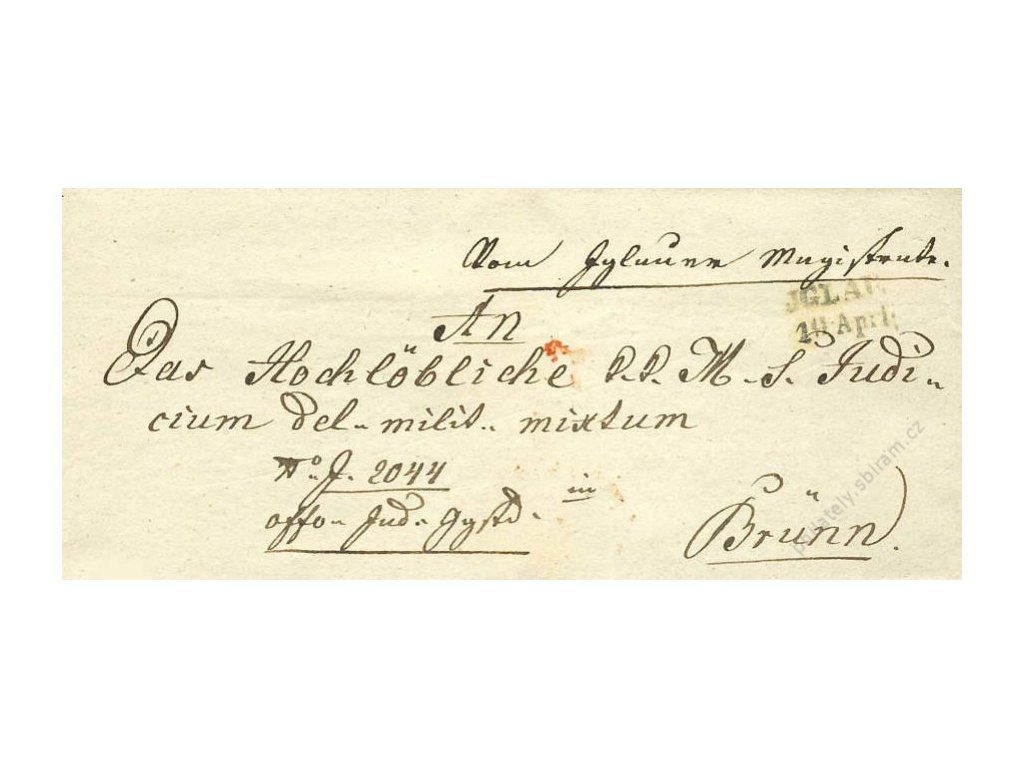 Vom Iglauer Magistrate.
JGLAU.
10 April:
An
Das Hochlöbliche k. k. M. S. Judi„
cium del„ milit„ mixtum
No. J. 2044
in
Brünn.
philately.sbiram.cz